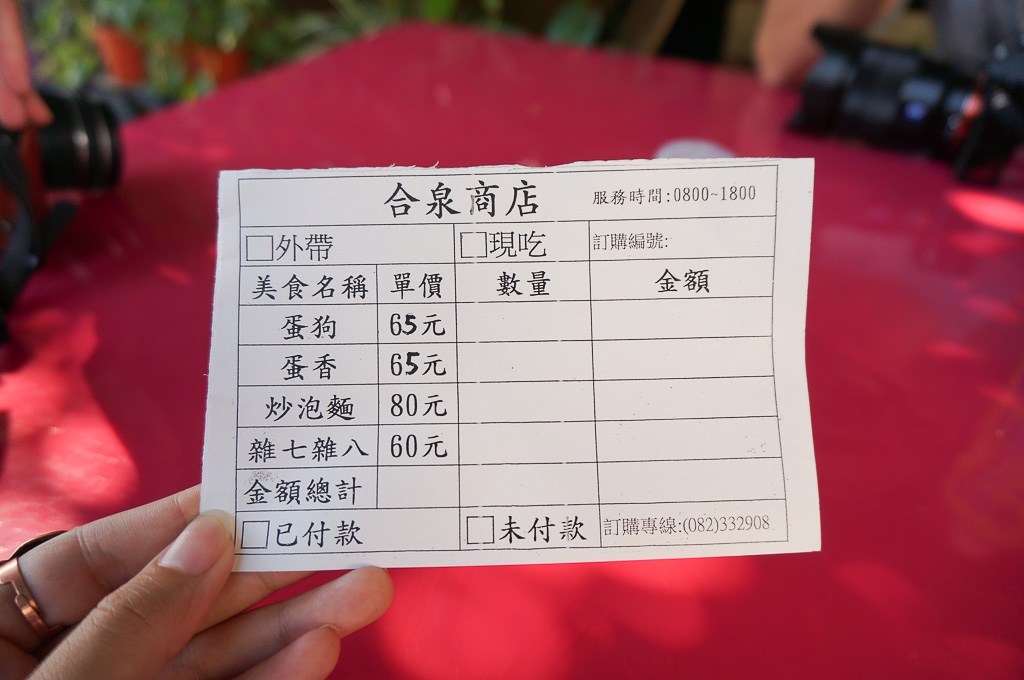 合泉商店 服務時間:0800~1800
□外帶 □現吃 訂購編號:
美食名稱 單價 數量 金額
蛋狗 65元
蛋香 65元
炒泡麵 80元
雜七雜八 60元
金額總計
□已付款 □未付款 訂購專線:(082)332908